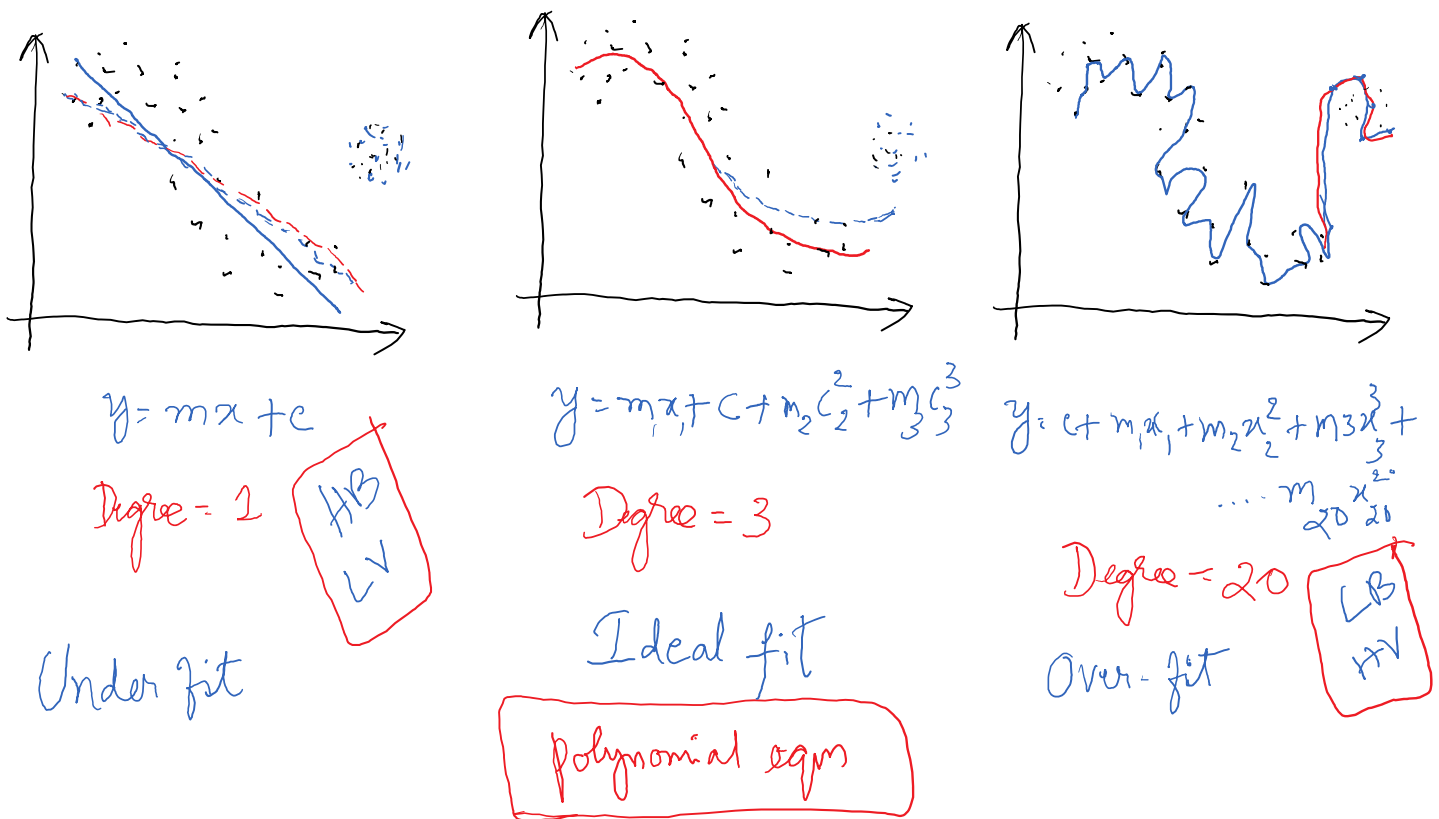 y = mx + c
Degree = 1
HB
LV
Under fit
y = m₁x₁ + C + m₂C₂² + m₃C₃³
Degree = 3
Ideal fit
polynomial eqns
y = c + m₁x₁ + m₂x₂² + m3x₃³ +
.... m₂₀ x₂₀²⁰
Degree = 20
LB
HV
Over-fit